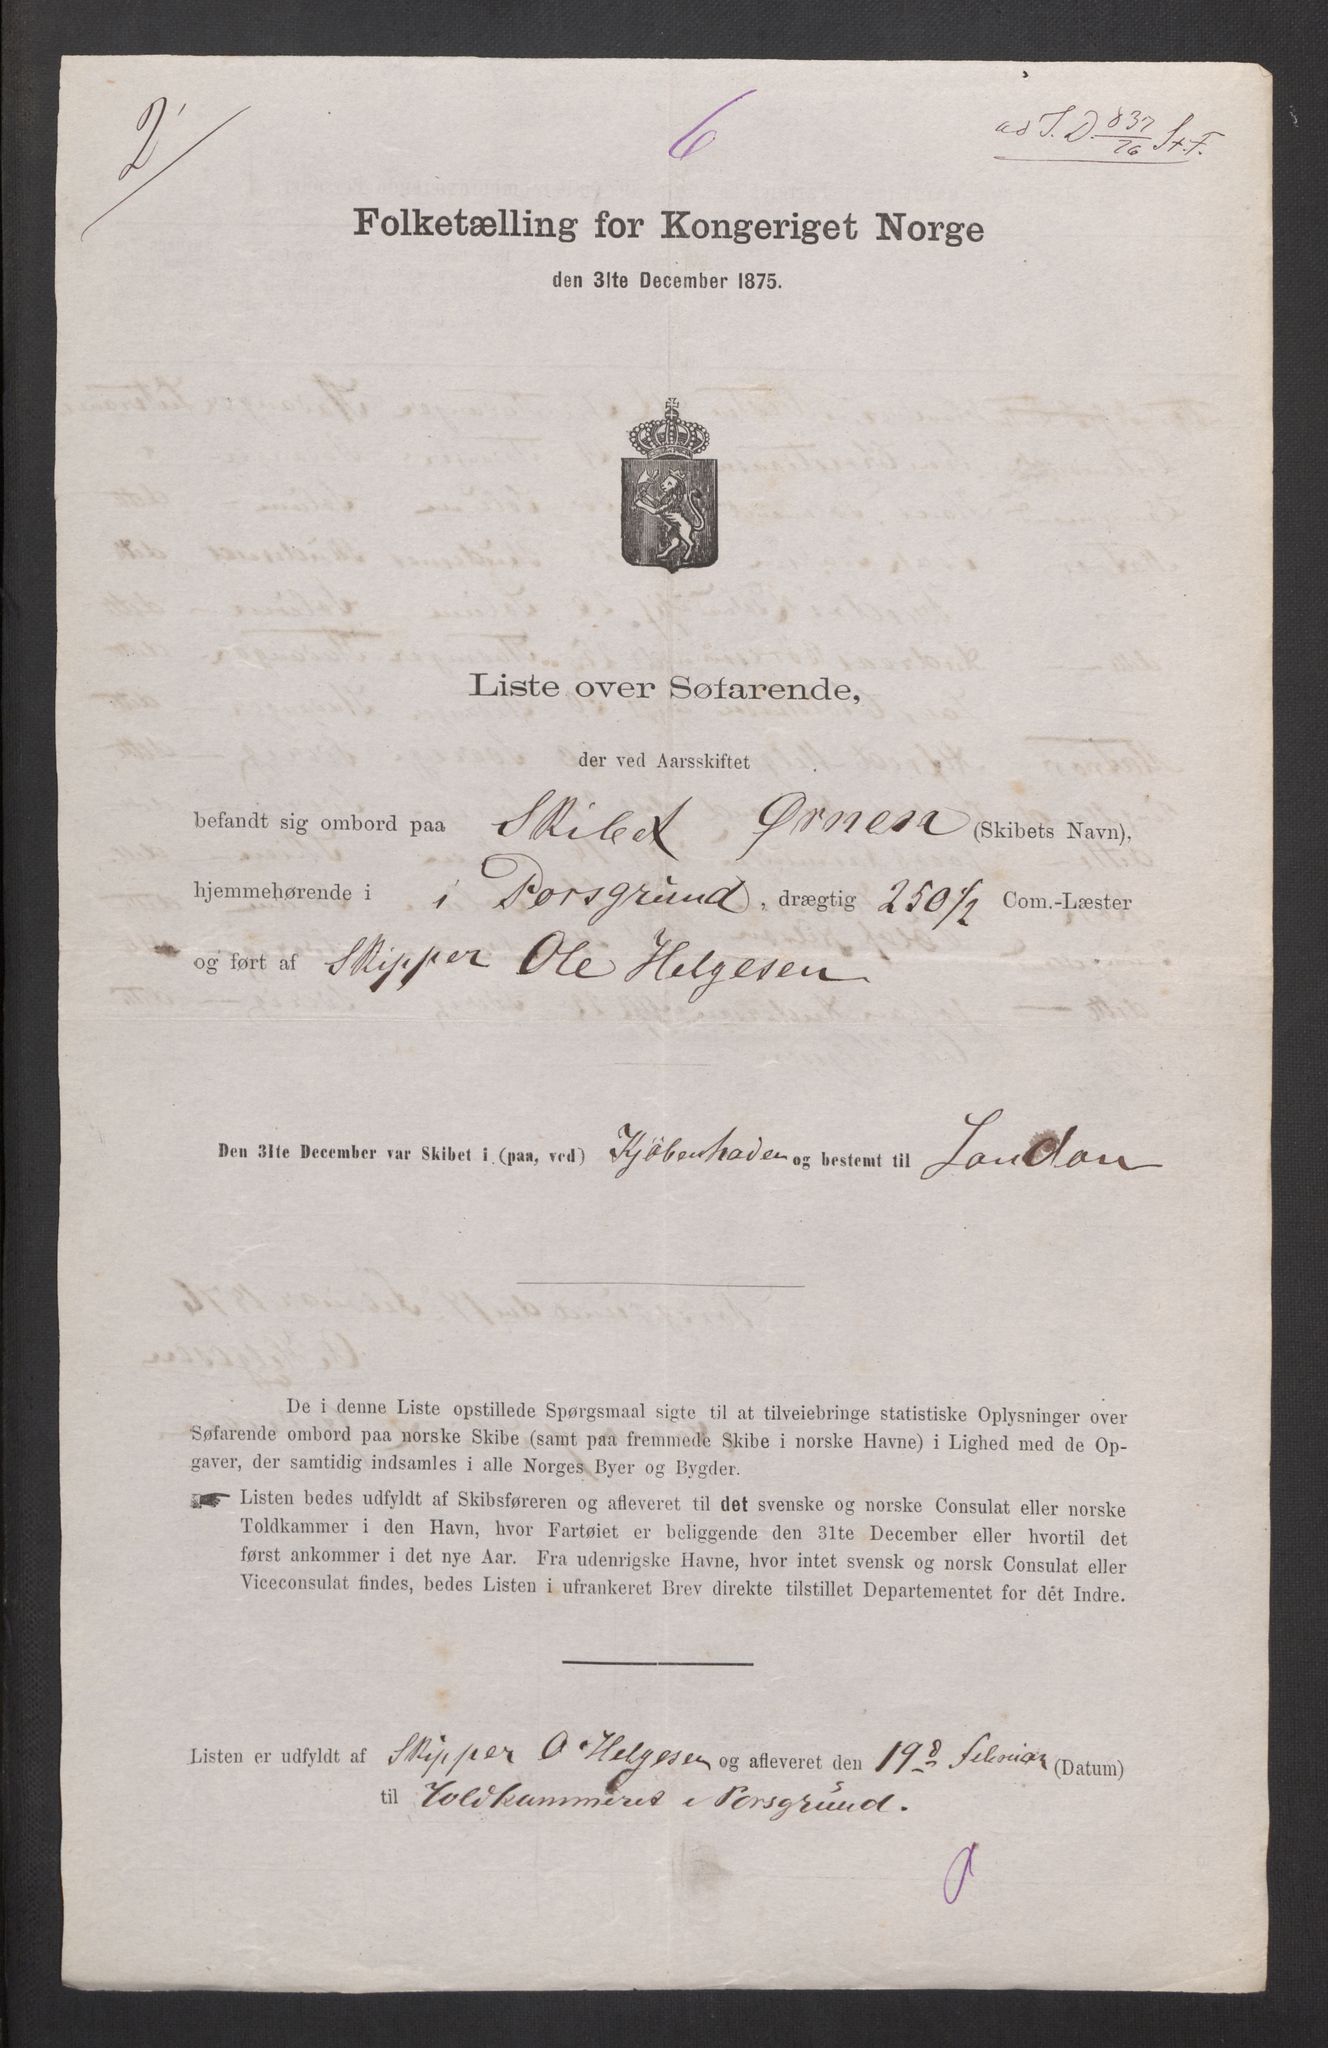 2
6
ad I.D. 837/76 St.F.
Folketælling for Kongeriget Norge
den 31te December 1875.
Liste over Søfarende,
der ved Aarsskiftet
befandt sig ombord paa Skibet Ørnen (Skibets Navn),
hjemmehørende i i Porsgrund, drægtig 250 1/2 Com.-Læster
og ført af Skipper Ole Helgesen
Den 31te December var Skibet i (paa, ved) Kjøbenhaven og bestemt til London
De i denne Liste opstillede Spørgsmaal sigte til at tilveiebringe statistiske Oplysninger over
Søfarende ombord paa norske Skibe (samt paa fremmede Skibe i norske Havne) i Lighed med de Op-
gaver, der samtidig indsamles i alle Norges Byer og Bygder.
Listen bedes udfyldt af Skibsføreren og afleveret til det svenske og norske Consulat eller norske
Toldkammer i den Havn, hvor Fartøiet er beliggende den 31te December eller hvortil det
først ankommer i det nye Aar. Fra udenrigske Havne, hvor intet svensk og norsk Consulat eller
Viceconsulat findes, bedes Listen i ufrankeret Brev direkte tilstillet Departementet for dét Indre.
Listen er udfyldt af Skipper O Helgesen og afleveret den 19d Februar (Datum)
til Toldkammeret i Porsgrund.